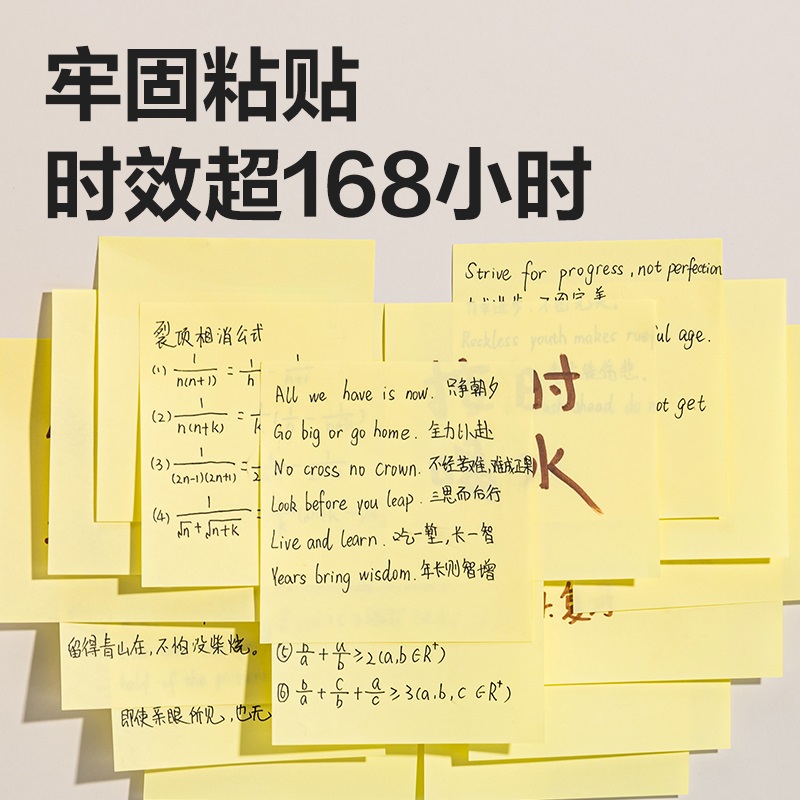 牢固粘贴
时效超168小时
Strive for progress, not perfection
Reckless youth makes rue ul age.
ot get
裂项相消公式
(1) 1/n(n+1) = 1/n
(2) 1/n(n+k) = 1/k
(3) 1/(2n-1)(2n+1) = 1/2
(4) 1/√n+√n+k =
时
K
All we have is now. 只争朝夕
Go big or go home. 全力以赴
No cross no crown. 不经苦难,难成正果
Look before you leap. 三思而后行
Live and learn. 吃一堑,长一智
Years bring wisdom. 年长则智增
复
留得青山在,不怕没柴烧。
即使亲眼所见,也无
⑤ b/a + a/b ≥2(a,b∈R⁺)
⑥ b/a + c/b + a/c ≥3(a,b,c∈R⁺)